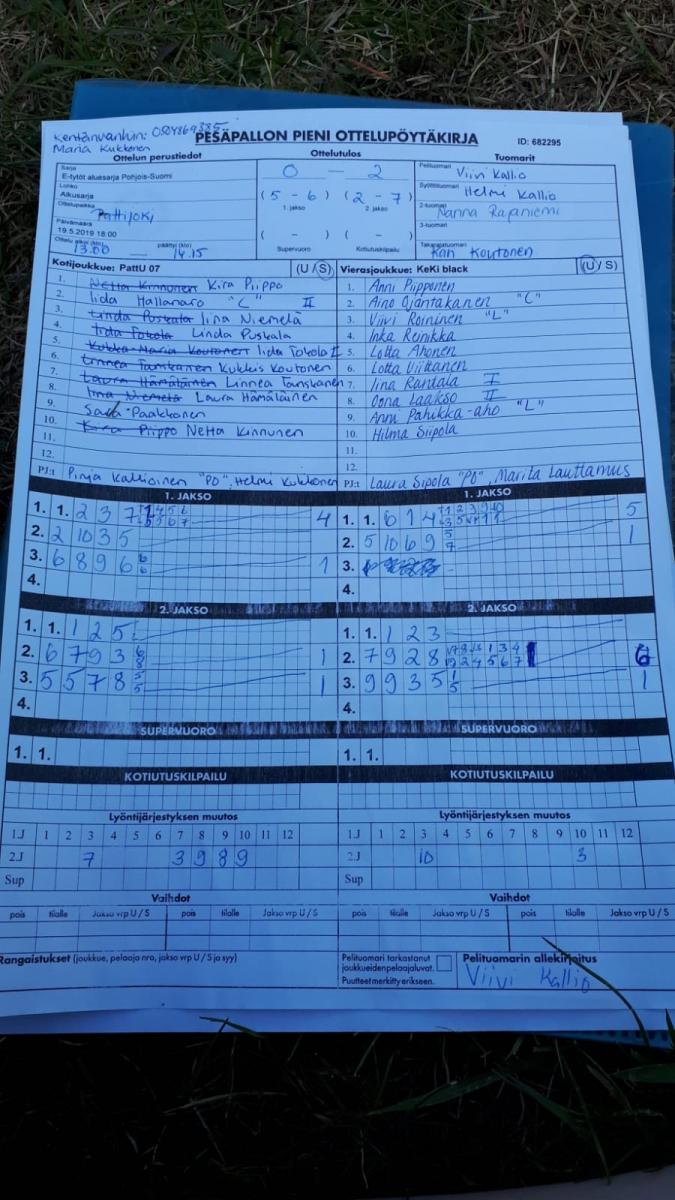 Kentänvanhin: 0504869385
Maria Kukkonen
PESÄPALLON PIENI OTTELUPÖYTÄKIRJA
ID: 682295
Ottelun perustiedot
Ottelutulos
Tuomarit
Sarja
E-tytöt aluesarja Pohjois-Suomi
Lohko
Alkusarja
Ottelupaikka
Pattijoki
Päivämäärä
19.5.2019 18:00
Ottelu alkoi (klo) päättyi (klo)
13.00 — 14.15
0 — 2
(5 - 6) (2 - 7)
1. jakso 2. jakso
( - ) ( - )
Supervuoro Kotiutuskilpailu
Pelituomari Viivi Kallio
Syöttötuomari Helmi Kallio
2-tuomari Nanna Rajaniemi
3-tuomari
Takarajatuomari
Kari Koutonen
Kotijoukkue: PattU 07 (U / S)
1. Netta Kinnunen Kira Piippo
2. Iida Hallanaro "C" II
3. Linda Puskala Iina Niemelä
4. Iida Tokola Linda Puskala
5. Kukka-Maria Koutonen Iida Tokola I
6. Linnea Tanskanen Kukkis Koutonen
7. Laura Hämäläinen Linnea Tanskanen
8. Iina Niemelä Laura Hämäläinen
9. Paakkonen
10. Kira Piippo Netta Kinnunen
11.
12.
PJ:t Pinja Kallioinen "PO", Helmi Kukkonen
Vierasjoukkue: KeKi black (U / S)
1. Anni Piipponen
2. Aino Ojantakanen "C"
3. Viivi Roininen "L"
4. Inka Reinikka
5. Lotta Ahonen
6. Lotta Viittanen
7. Iina Rantala I
8. Oona Laakso II
9. Anni Pahikka-aho "L"
10. Hilma Siipola
11.
12.
PJ:t Laura Sipola "PO", Marita Lauttamus
1. JAKSO
1. 1. 2 3 7 4
2. 2 10 3 5
3. 6 8 9 6 6 6 1
4.
1. JAKSO
1. 1. 6 1 4 5
2. 5 10 6 9 5 7 1
3.
4.
2. JAKSO
1. 1. 1 2 5
2. 6 7 9 3 6 8 1
3. 5 5 7 8 5 5 1
4.
2. JAKSO
1. 1. 1 2 3
2. 7 9 2 8 6
3. 9 9 3 5 1 5 1
4.
SUPERVUORO
1. 1.
SUPERVUORO
1. 1.
KOTIUTUSKILPAILU
KOTIUTUSKILPAILU
Lyöntijärjestyksen muutos
1.J 1 2 3 4 5 6 7 8 9 10 11 12
2.J 7 3 9 8 9
Sup
Lyöntijärjestyksen muutos
1.J 1 2 3 4 5 6 7 8 9 10 11 12
2.J 10 3
Sup
Vaihdot
pois tilalle Jakso vrp U / S pois tilalle Jakso vrp U / S
Vaihdot
pois tilalle Jakso vrp U / S pois tilalle Jakso vrp U / S
Rangaistukset (joukkue, pelaaja nro, jakso vrp U / S ja syy)
Pelituomari tarkastanut
joukkueiden pelaajaluvat.
Puutteet merkitty erikseen.
Pelituomarin allekirjoitus
Viivi Kallio